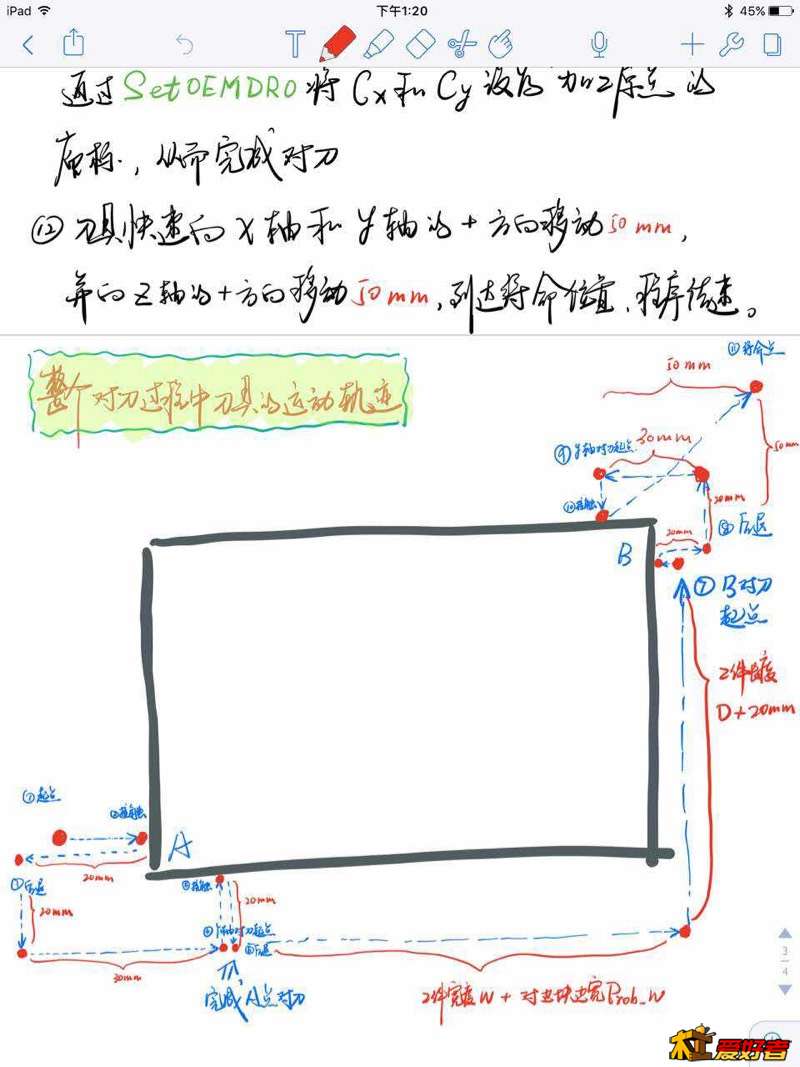 iPad
下午1:20
45%
T
通过SetOEMDRO将Cx和Cy设为加工原点的
座标.，从而完成对刀
⑫ 刀具快速向X轴和Y轴的+方向移动50mm，
并向Z轴的+方向移动50mm，到达待命位置，程序结束。
整个对刀过程中刀具的运动轨迹
⑪待命点
50mm
30mm
⑨Y轴对刀起点
50mm
⑩接触
20mm
⑧后退
20mm
B
⑦B对刀
起点
工件长度
D+20mm
①起点
②接触
A
20mm
③后退
20mm
⑤接触
20mm
④Y轴对刀起点
⑥后退
30mm
完成A点对刀
工件宽度W + 对刀块边宽Prob_W
3
4
爱好者